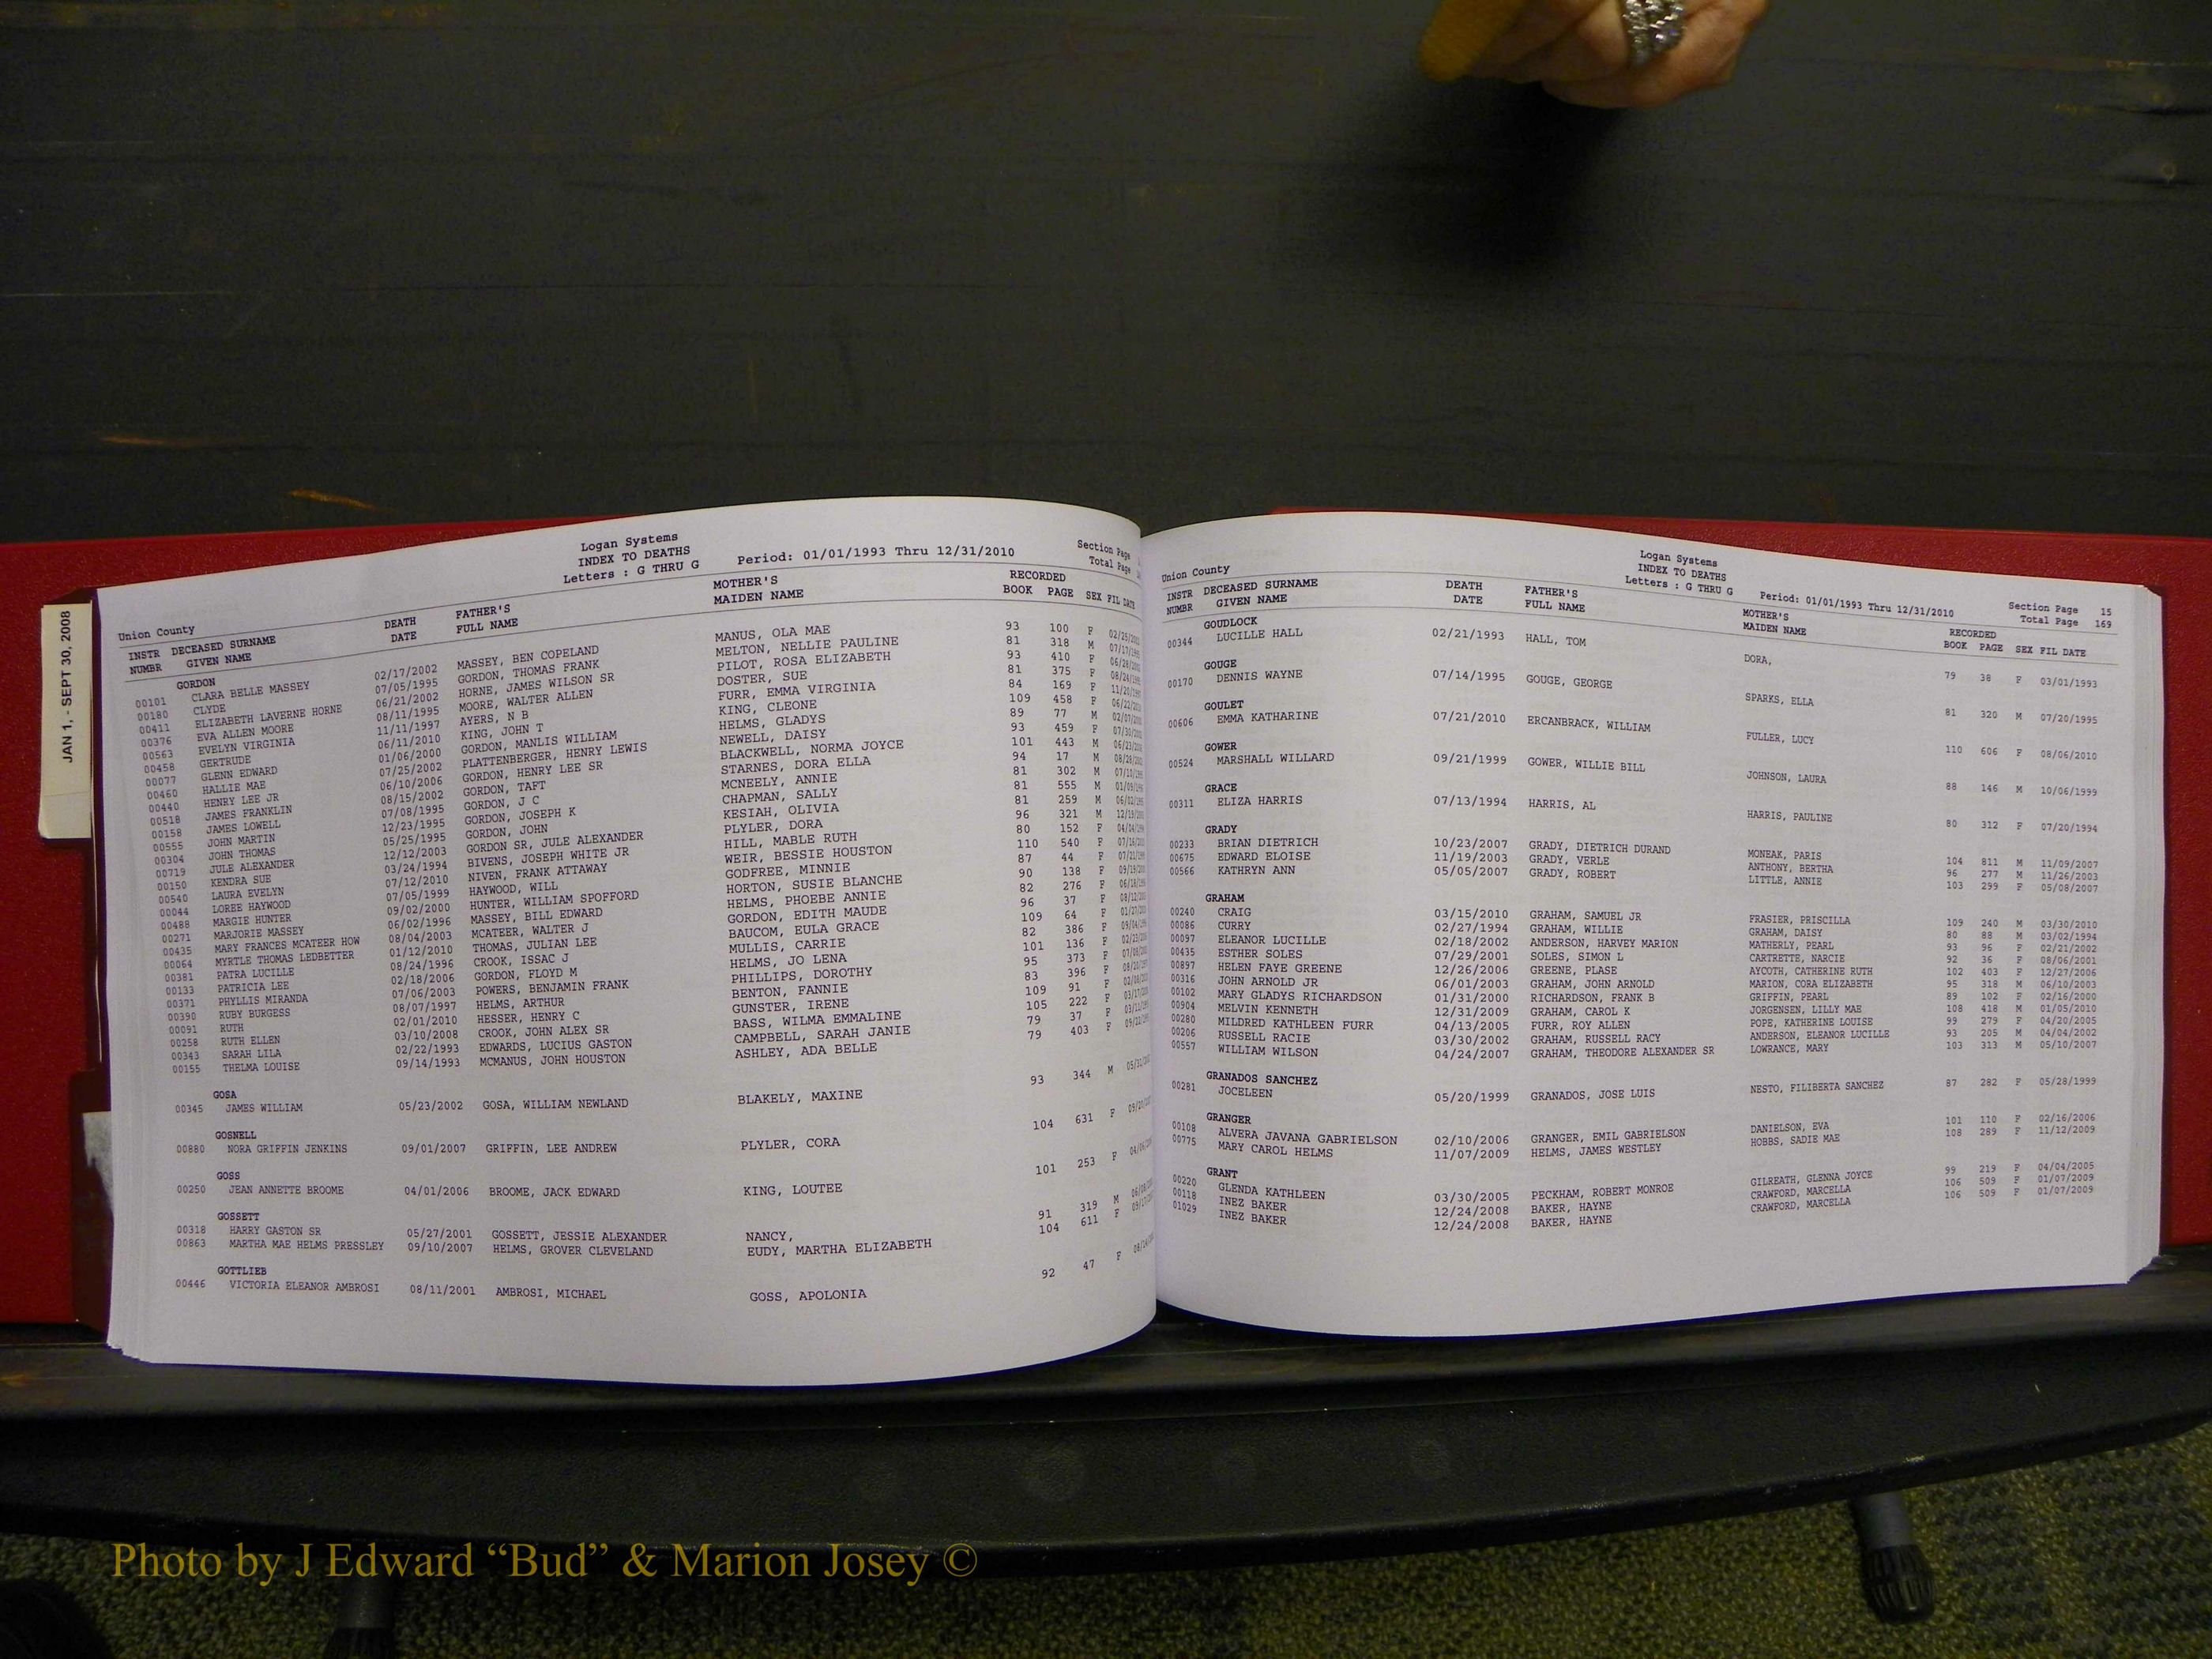 JAN 1, - SEPT 30, 2008
Logan Systems
INDEX TO DEATHS
Letters : G THRU G Period: 01/01/1993 Thru 12/31/2010
Section Page
Total Page
Union County
INSTR DECEASED SURNAME DEATH FATHER'S MOTHER'S RECORDED
NUMBR GIVEN NAME DATE FULL NAME MAIDEN NAME BOOK PAGE SEX FIL DATE
GORDON
00101 CLARA BELLE MASSEY 02/17/2002 MASSEY, BEN COPELAND MANUS, OLA MAE 93 100 F
00180 CLYDE 07/05/1995 GORDON, THOMAS FRANK MELTON, NELLIE PAULINE 81 318 M
00411 ELIZABETH LAVERNE HORNE 06/21/2002 HORNE, JAMES WILSON SR PILOT, ROSA ELIZABETH 93 410 F
00376 EVA ALLEN MOORE 08/11/1995 MOORE, WALTER ALLEN DOSTER, SUE 81 375 F
00563 EVELYN VIRGINIA 11/11/1997 AYERS, N B FURR, EMMA VIRGINIA 84 169 F
00458 GERTRUDE 06/11/2010 KING, JOHN T KING, CLEONE 109 458 F
00077 GLENN EDWARD 01/06/2000 GORDON, MANLIS WILLIAM HELMS, GLADYS 89 77 M
00460 HALLIE MAE 07/25/2002 PLATTENBERGER, HENRY LEWIS NEWELL, DAISY 93 459 F
00440 HENRY LEE JR 06/10/2006 GORDON, HENRY LEE SR BLACKWELL, NORMA JOYCE 101 443 M
00518 JAMES FRANKLIN 08/15/2002 GORDON, TAFT STARNES, DORA ELLA 94 17 M
00158 JAMES LOWELL 07/08/1995 GORDON, J C MCNEELY, ANNIE 81 302 M
00555 JOHN MARTIN 12/23/1995 GORDON, JOSEPH K CHAPMAN, SALLY 81 555 M
00304 JOHN THOMAS 05/25/1995 GORDON, JOHN KESIAH, OLIVIA 81 259 M
00719 JULE ALEXANDER 12/12/2003 GORDON SR, JULE ALEXANDER PLYLER, DORA 96 321 M
00150 KENDRA SUE 03/24/1994 BIVENS, JOSEPH WHITE JR HILL, MABLE RUTH 80 152 F
00540 LAURA EVELYN 07/12/2010 NIVEN, FRANK ATTAWAY WEIR, BESSIE HOUSTON 110 540 F
00044 LOREE HAYWOOD 07/05/1999 HAYWOOD, WILL GODFREE, MINNIE 87 44 F
00488 MARGIE HUNTER 09/02/2000 HUNTER, WILLIAM SPOFFORD HORTON, SUSIE BLANCHE 90 138 F
00271 MARJORIE MASSEY 06/02/1996 MASSEY, BILL EDWARD HELMS, PHOEBE ANNIE 82 276 F
00435 MARY FRANCES MCATEER HOW 08/04/2003 MCATEER, WALTER J GORDON, EDITH MAUDE 96 37 F
00064 MYRTLE THOMAS LEDBETTER 01/12/2010 THOMAS, JULIAN LEE BAUCOM, EULA GRACE 109 64 F
00381 PATRA LUCILLE 08/24/1996 CROOK, ISSAC J MULLIS, CARRIE 82 386 F
00133 PATRICIA LEE 02/18/2006 GORDON, FLOYD M HELMS, JO LENA 101 136 F
00371 PHYLLIS MIRANDA 07/06/2003 POWERS, BENJAMIN FRANK PHILLIPS, DOROTHY 95 373 F
00390 RUBY BURGESS 08/07/1997 HELMS, ARTHUR BENTON, FANNIE 83 396 F
00091 RUTH 02/01/2010 HESSER, HENRY C GUNSTER, IRENE 109 91 F
00258 RUTH ELLEN 03/10/2008 CROOK, JOHN ALEX SR BASS, WILMA EMMALINE 105 222 F
00343 SARAH LILA 02/22/1993 EDWARDS, LUCIUS GASTON CAMPBELL, SARAH JANIE 79 37 F
00155 THELMA LOUISE 09/14/1993 MCMANUS, JOHN HOUSTON ASHLEY, ADA BELLE 79 403 F
GOSA
00345 JAMES WILLIAM 05/23/2002 GOSA, WILLIAM NEWLAND BLAKELY, MAXINE 93 344 M
GOSNELL
00880 NORA GRIFFIN JENKINS 09/01/2007 GRIFFIN, LEE ANDREW PLYLER, CORA 104 631 F
GOSS
00250 JEAN ANNETTE BROOME 04/01/2006 BROOME, JACK EDWARD KING, LOUTEE 101 253 F
GOSSETT
00318 HARRY GASTON SR 05/27/2001 GOSSETT, JESSIE ALEXANDER NANCY, 91 319 M
00863 MARTHA MAE HELMS PRESSLEY 09/10/2007 HELMS, GROVER CLEVELAND EUDY, MARTHA ELIZABETH 104 611 F
GOTTLIEB
00446 VICTORIA ELEANOR AMBROSI 08/11/2001 AMBROSI, MICHAEL GOSS, APOLONIA 92 47 F
Logan Systems
INDEX TO DEATHS
Letters : G THRU G Period: 01/01/1993 Thru 12/31/2010
Section Page 15
Total Page 169
Union County
INSTR DECEASED SURNAME DEATH FATHER'S MOTHER'S RECORDED
NUMBR GIVEN NAME DATE FULL NAME MAIDEN NAME BOOK PAGE SEX FIL DATE
GOUDLOCK
00344 LUCILLE HALL 02/21/1993 HALL, TOM DORA, 79 38 F 03/01/1993
GOUGE
00170 DENNIS WAYNE 07/14/1995 GOUGE, GEORGE SPARKS, ELLA 81 320 M 07/20/1995
GOULET
00606 EMMA KATHARINE 07/21/2010 ERCANBRACK, WILLIAM FULLER, LUCY 110 606 F 08/06/2010
GOWER
00524 MARSHALL WILLARD 09/21/1999 GOWER, WILLIE BILL JOHNSON, LAURA 88 146 M 10/06/1999
GRACE
00311 ELIZA HARRIS 07/13/1994 HARRIS, AL HARRIS, PAULINE 80 312 F 07/20/1994
GRADY
00233 BRIAN DIETRICH 10/23/2007 GRADY, DIETRICH DURAND MONEAK, PARIS 104 811 M 11/09/2007
00675 EDWARD ELOISE 11/19/2003 GRADY, VERLE ANTHONY, BERTHA 96 277 M 11/26/2003
00566 KATHRYN ANN 05/05/2007 GRADY, ROBERT LITTLE, ANNIE 103 299 F 05/08/2007
GRAHAM
00240 CRAIG 03/15/2010 GRAHAM, SAMUEL JR FRASIER, PRISCILLA 109 240 M 03/30/2010
00086 CURRY 02/27/1994 GRAHAM, WILLIE GRAHAM, DAISY 80 88 M 03/02/1994
00097 ELEANOR LUCILLE 02/18/2002 ANDERSON, HARVEY MARION MATHERLY, PEARL 93 96 F 02/21/2002
00435 ESTHER SOLES 07/29/2001 SOLES, SIMON L CARTRETTE, NARCIE 92 36 F 08/06/2001
00897 HELEN FAYE GREENE 12/26/2006 GREENE, PLASE AYCOTH, CATHERINE RUTH 102 403 F 12/27/2006
00316 JOHN ARNOLD JR 06/01/2003 GRAHAM, JOHN ARNOLD MARION, CORA ELIZABETH 95 318 M 06/10/2003
00102 MARY GLADYS RICHARDSON 01/31/2000 RICHARDSON, FRANK B GRIFFIN, PEARL 89 102 F 02/16/2000
00904 MELVIN KENNETH 12/31/2009 GRAHAM, CAROL K JORGENSEN, LILLY MAE 108 418 M 01/05/2010
00280 MILDRED KATHLEEN FURR 04/13/2005 FURR, ROY ALLEN POPE, KATHERINE LOUISE 99 279 F 04/20/2005
00206 RUSSELL RACIE 03/30/2002 GRAHAM, RUSSELL RACY ANDERSON, ELEANOR LUCILLE 93 205 M 04/04/2002
00557 WILLIAM WILSON 04/24/2007 GRAHAM, THEODORE ALEXANDER SR LOWRANCE, MARY 103 313 M 05/10/2007
GRANADOS SANCHEZ
00281 JOCELEEN 05/20/1999 GRANADOS, JOSE LUIS NESTO, FILIBERTA SANCHEZ 87 282 F 05/28/1999
GRANGER
00108 ALVERA JAVANA GABRIELSON 02/10/2006 GRANGER, EMIL GABRIELSON DANIELSON, EVA 101 110 F 02/16/2006
00775 MARY CAROL HELMS 11/07/2009 HELMS, JAMES WESTLEY HOBBS, SADIE MAE 108 289 F 11/12/2009
GRANT
00220 GLENDA KATHLEEN 03/30/2005 PECKHAM, ROBERT MONROE GILREATH, GLENNA JOYCE 99 219 F 04/04/2005
00118 INEZ BAKER 12/24/2008 BAKER, HAYNE CRAWFORD, MARCELLA 106 509 F 01/07/2009
01029 INEZ BAKER 12/24/2008 BAKER, HAYNE CRAWFORD, MARCELLA 106 509 F 01/07/2009
Photo by J Edward “Bud” & Marion Josey ©